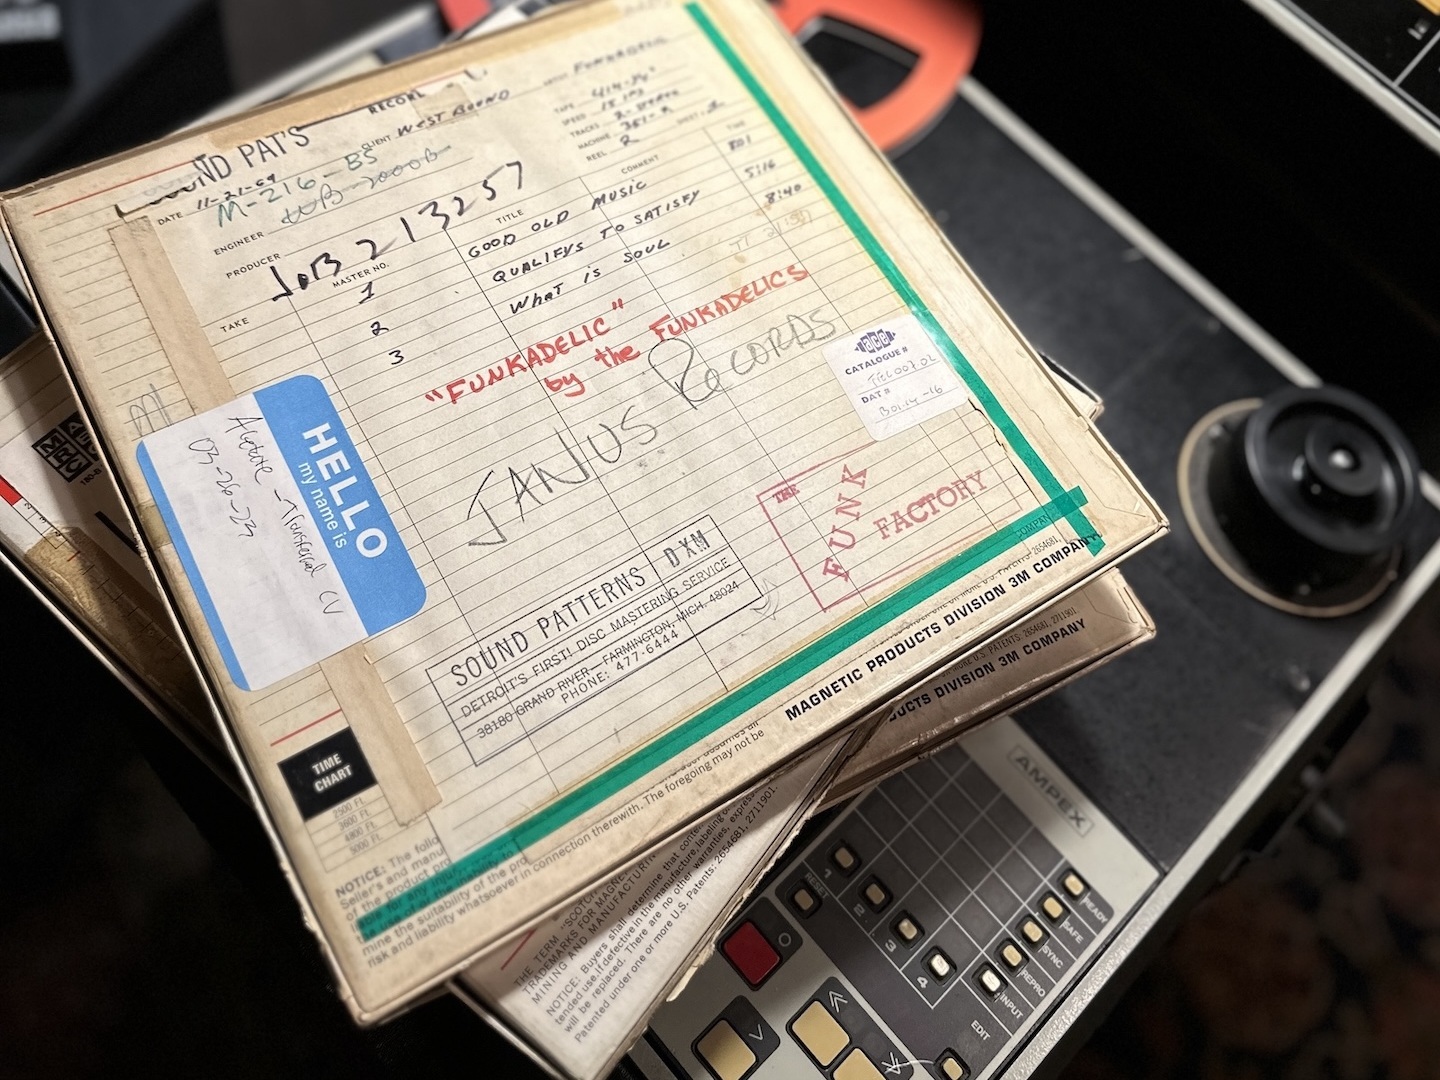 SOUND PAT'S
RECORD
CLIENT WEST BOUND
ARTIST FUNKADELIC
DATE 11-21-69
M-216-BS
WB-2000B
TAPE 414-1/4"
SPEED 15 IPS
TRACKS 2-
MACHINE 351-R
SHEET 1
REEL 2
ENGINEER
PRODUCER
JOB 213257
TAKE
MASTER NO.
TITLE
COMMENT
TIME
1 GOOD OLD MUSIC 8:01
2 QUALIFYS TO SATISFY 5:16
3 WHAT IS SOUL 8:40
"FUNKADELIC"
by the FUNKADELIC'S
JANUS RECORDS
ace
CATALOGUE #
DAT #
HELLO
my name is
Transferred CV
SOUND PATTERNS DXM
DETROIT'S FIRST! DISC MASTERING SERVICE
38180 GRAND RIVER—FARMINGTON, MICH. 48024
PHONE: 477-6444
THE
FUNK
FACTORY
TIME
CHART
2500 FT.
3600 FT.
4800 FT.
5000 FT.
MAGNETIC PRODUCTS DIVISION 3M COMPANY
NOTICE: The follo
Sellers and manu
of the product pro
mine the suitability of the pro
risk and liability whatsoever in connection therewith. The foregoing may not be
MORE U.S. PATENTS: 2654681, 2711901.
DUCTS DIVISION 3M COMPANY
THE TERM "SCOTCH
TRADEMARKS FOR MAGNE
MINING AND MANUFACTURIN
NOTICE: Buyers shall determine that
tended use. If defective in the manufacture, labeling
will be replaced. There are no other warranties, express
Patented under one or more U.S. Patents: 2654681, 2711901.
AMPEX
1
2
3
4
RESET
READY
SAFE
SYNC
REPRO
INPUT
EDIT